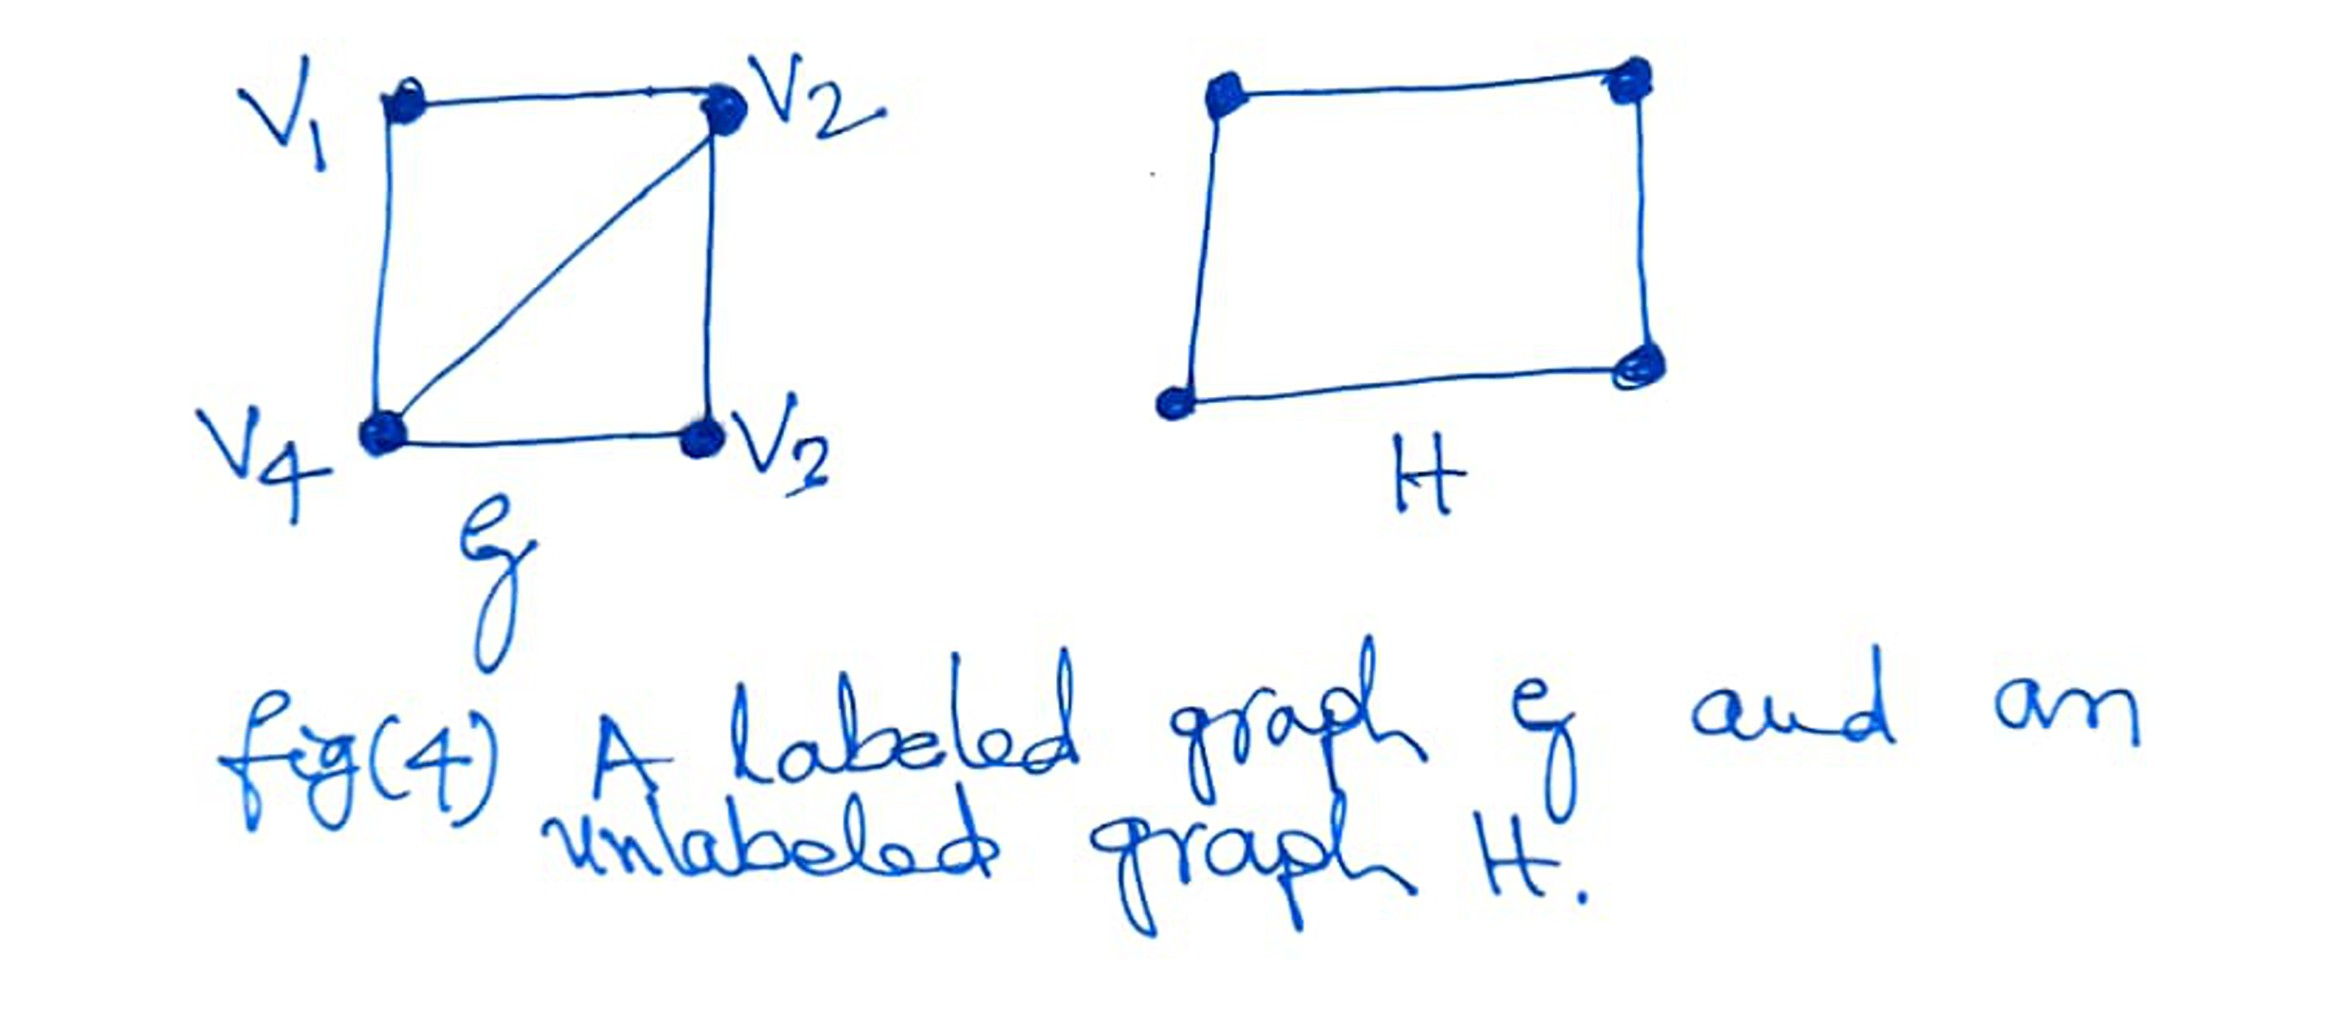 V1 V2
V4 V3
G H
fig(4) A labeled graph G and an
unlabeled graph H.